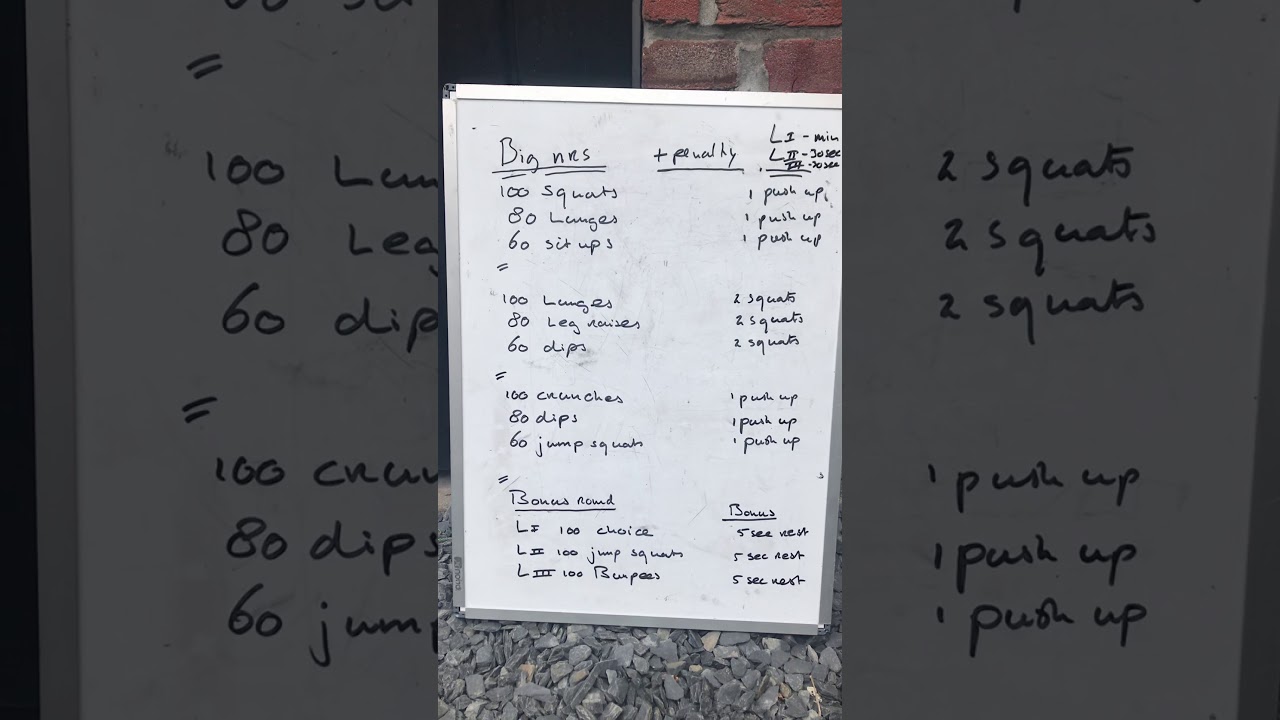 LI - min
Big nrs + penalty LII - 30sec
III - 20sec
100 squats 1 push up
80 Lunges 1 push up
60 sit ups 1 push up
=
100 Lunges 2 squats
80 Leg raises 2 squats
60 dips 2 squats
=
100 crunches 1 push up
80 dips 1 push up
60 jump squats 1 push up
=
Bonus round Bonus
LI 100 choice 5 sec rest
LII 100 jump squats 5 sec rest
LIII 100 Burpees 5 sec rest
nobo